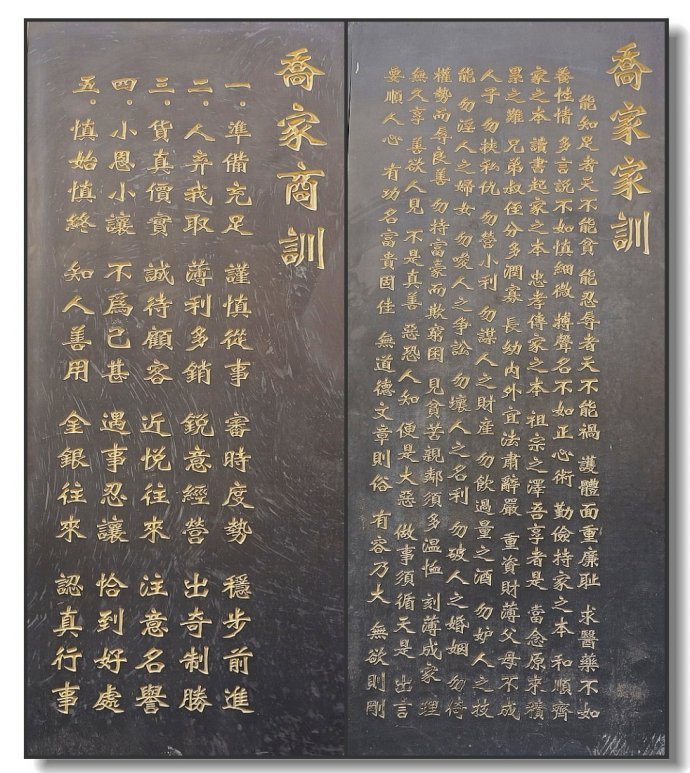 喬家家訓
能知足者天不能貧 能忍辱者天不能禍 護體面重廉耻 求醫藥不如
養性情 多言説不如慎細微 搏聲名不如正心術 勤儉持家之本 和順齊
家之本 讀書起家之本 忠孝傳家之本 祖宗之澤吾享者是 當念原來積
累之難 兄弟叔侄分多潤寡 長幼内外宜法肅辭嚴 重資財薄父母不成
人子 勿挾私仇 勿營小利 勿謀人之財産 勿飲過量之酒 勿妒人之技
能 勿淫人之婦女 勿唆人之争訟 勿壞人之名利 勿破人之婚姻 勿倚
權勢而辱良善 勿恃富豪而欺窮困 見貧苦親鄰須多温恤 刻薄成家 理
無久享 善欲人見 不是真善 惡恐人知 便是大惡 做事須循天是 出言
要順人心 有功名富貴固佳 無道德文章則俗 有容乃大 無欲則剛
喬家商訓
一。準備充足 謹慎從事 審時度勢 穩步前進
二。人弃我取 薄利多銷 鋭意經營 出奇制勝
三。貨真價實 誠待顧客 近悦往來 注意名譽
四。小恩小讓 不爲己甚 遇事忍讓 恰到好處
五。慎始慎終 知人善用 金銀往來 認真行事